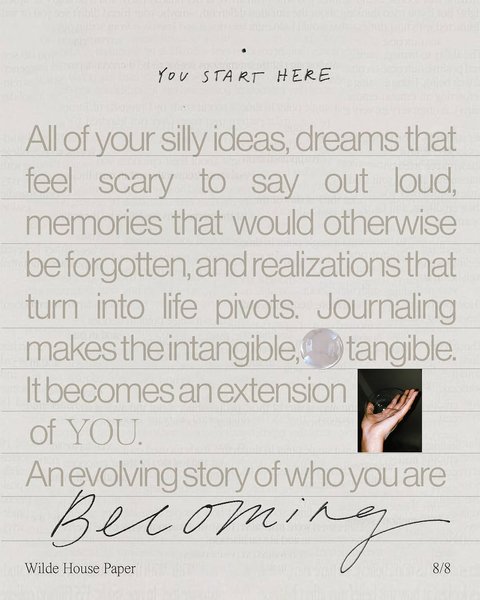 YOU START HERE
All of your silly ideas, dreams that
feel scary to say out loud,
memories that would otherwise
be forgotten, and realizations that
turn into life pivots. Journaling
makes the intangible, tangible.
It becomes an extension
of YOU.
An evolving story of who you are
Becoming
Wilde House Paper
8/8